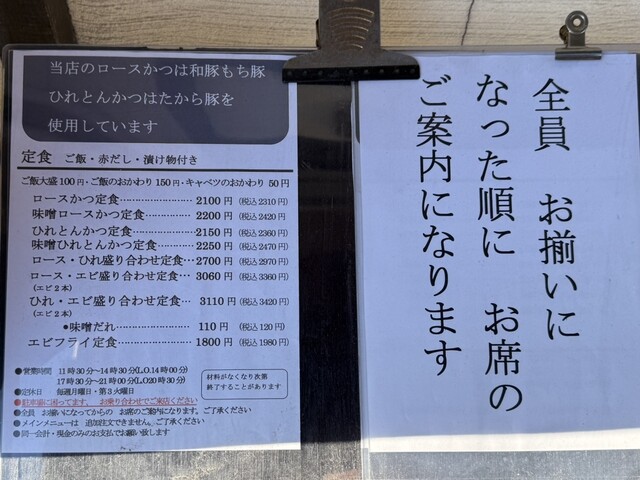 当店のロースかつは和豚もち豚
ひれとんかつはたから豚を
使用しています
定食 ご飯・赤だし・漬け物付き
ご飯大盛100円・ご飯のおかわり150円・キャベツのおかわり50円
ロースかつ定食……………………2100円(税込2310円)
味噌ロースかつ定食………………2200円(税込2420円)
ひれとんかつ定食…………………2150円(税込2360円)
味噌ひれとんかつ定食……………2250円(税込2470円)
ロース・ひれ盛り合わせ定食…2700円(税込2970円)
ロース・エビ盛り合わせ定食…3060円(税込3360円)
(エビ2本)
ひれ・エビ盛り合わせ定食… 3110円(税込3420円)
(エビ2本)
●味噌だれ………………110円(税込120円)
エビフライ定食……………………1800円(税込1980円)
●営業時間 11時30分〜14時30分(L.O.14時00分)
17時30分〜21時00分(L.O.20時30分)
材料がなくなり次第
終了することがあります
●定休日 毎週月曜日・第3火曜日
●駐車場に困ってます。お乗り合わせでご来店ください
●全員 お揃いになってからの お席のご案内になります。ご了承ください
●メインメニューは 追加注文できません。ご了承ください
●同一会計・現金のみのお支払でお願い致します
全員 お揃いに
なった順に お席の
ご案内になります